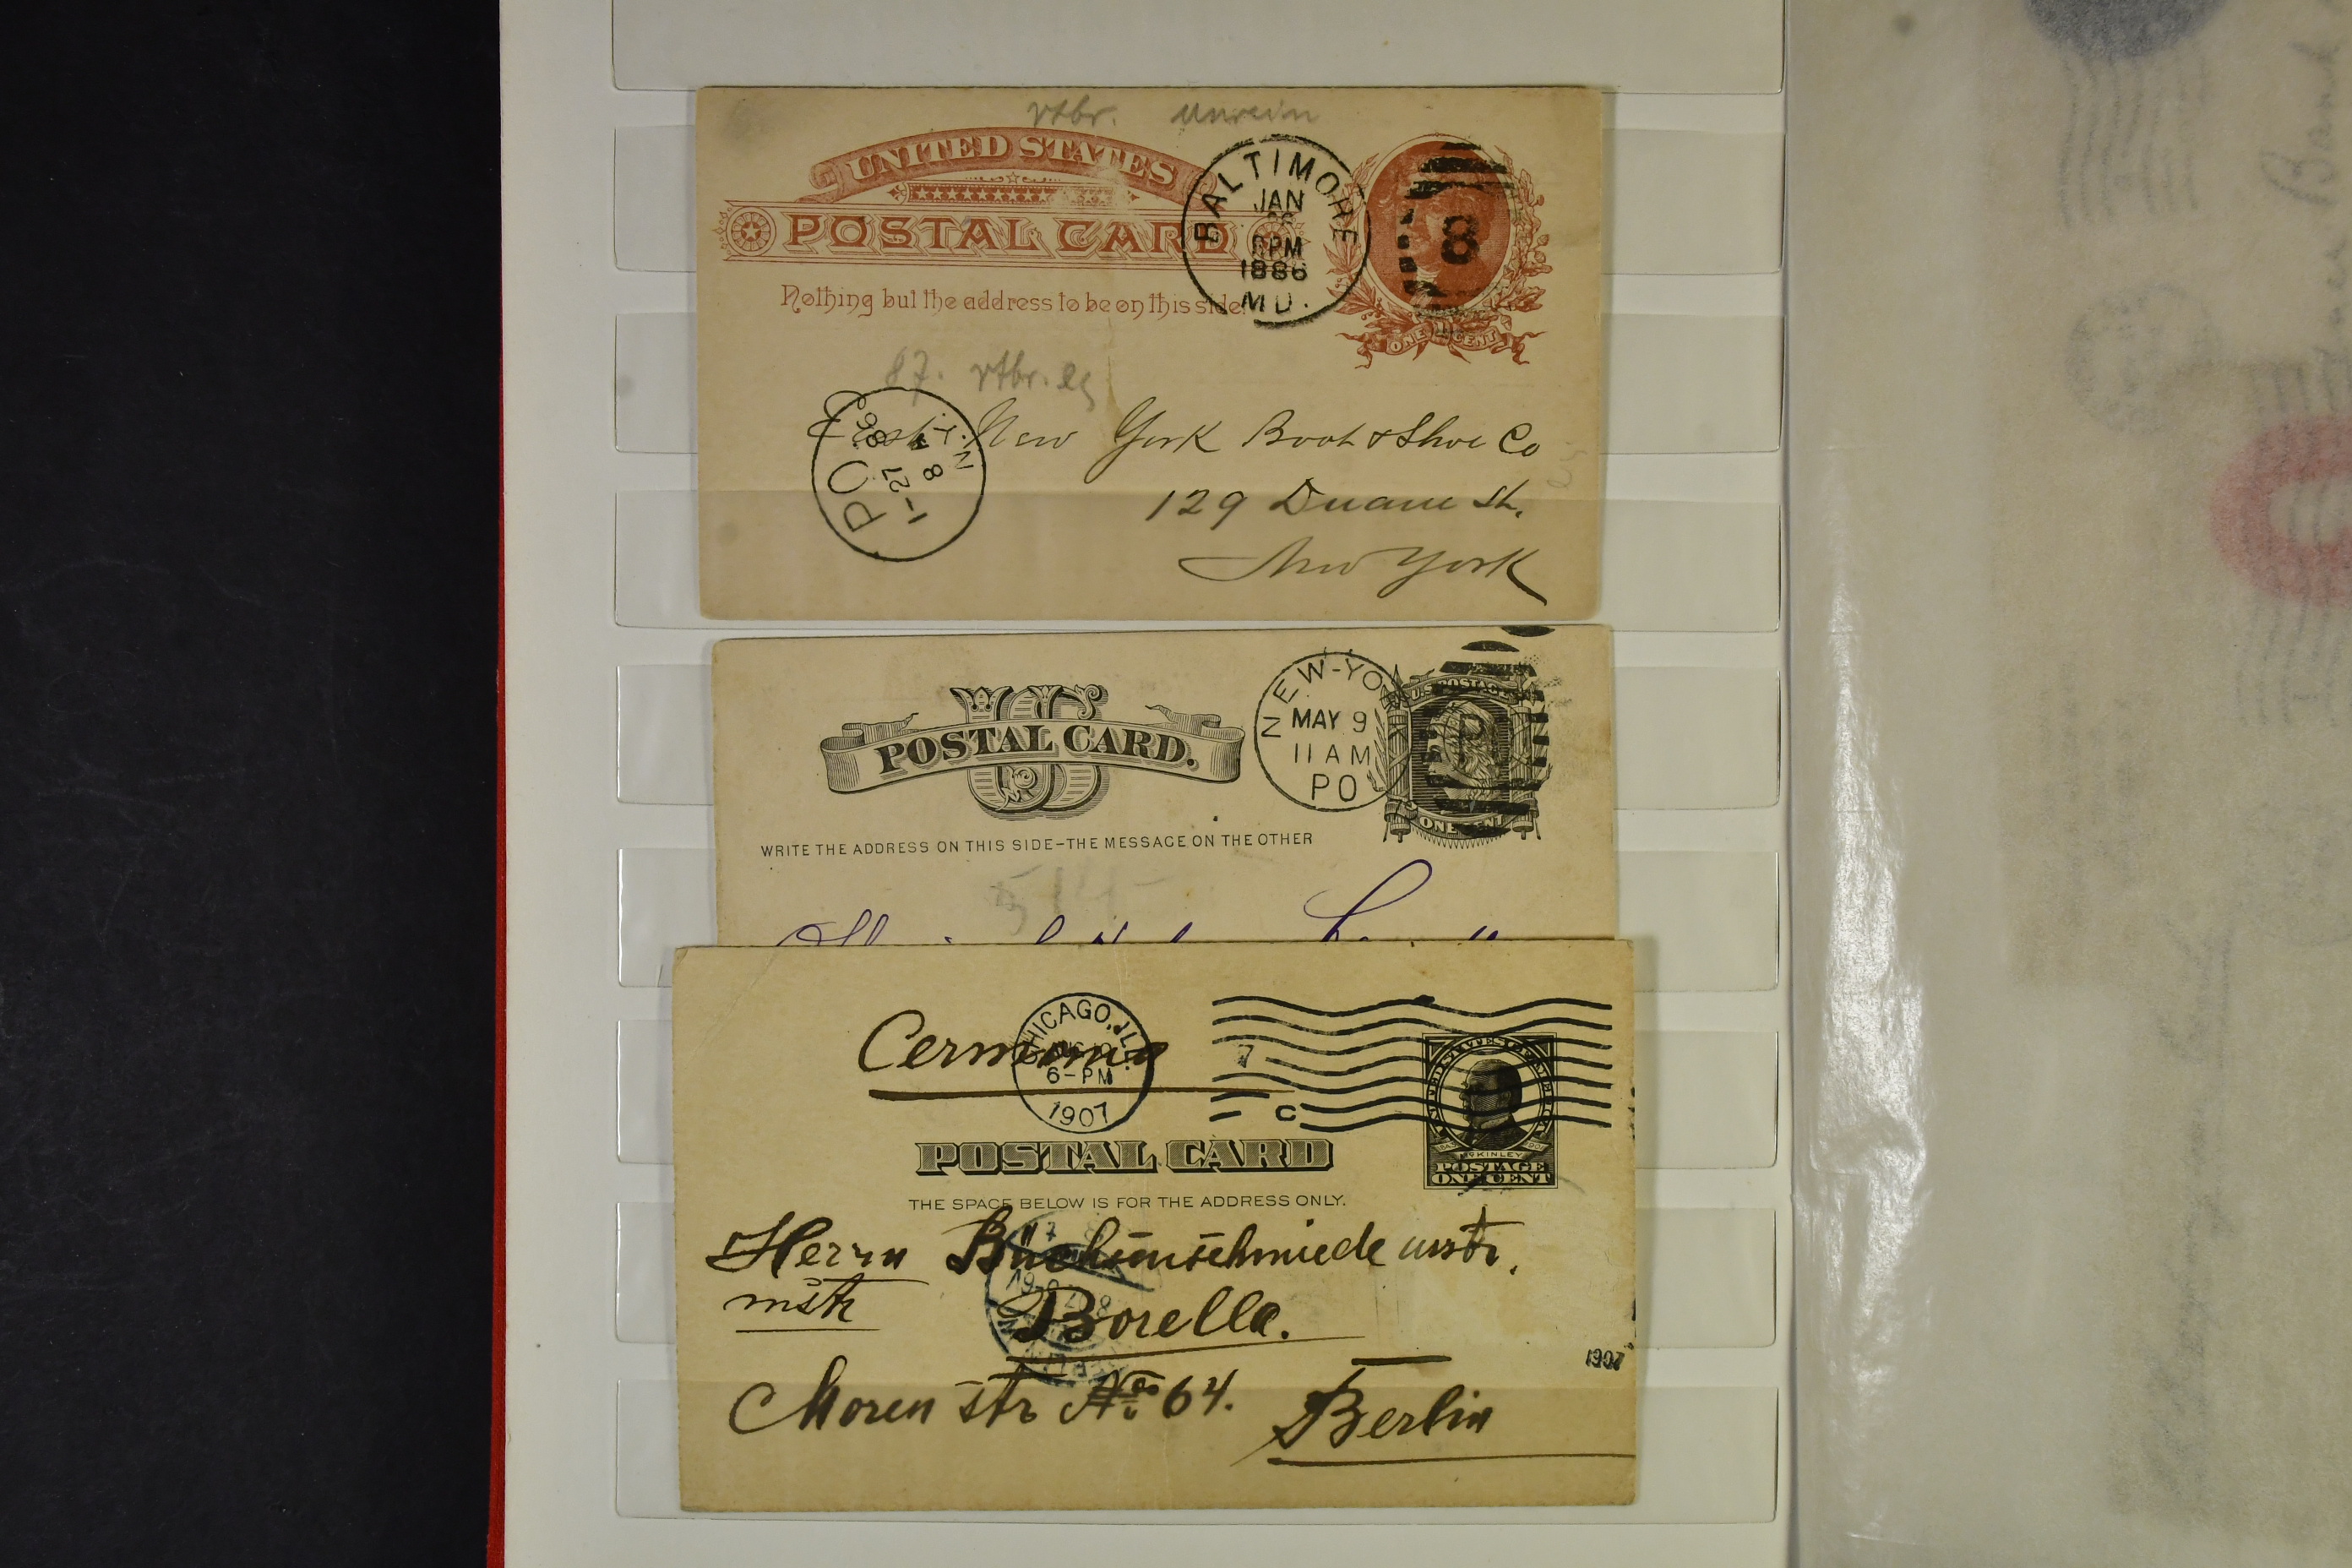 unrein
UNITED STATES
POSTAL CARD
Nothing but the address to be on this side.
BALTIMORE
JAN
6PM
1886
MD.
8
ONE CENT
87.
New York Boot & Shoe Co
129 Duane St.
New York
N.Y.
PO
1-27
8 A
86
U S
POSTAL CARD.
WRITE THE ADDRESS ON THIS SIDE-THE MESSAGE ON THE OTHER
NEW-YORK
MAY 9
11 AM
PO
P
U.S. POSTAGE
ONE CENT
CHICAGO, ILL.
6-PM
1907
7
C
McKINLEY
POSTAGE
ONE CENT
POSTAL CARD
THE SPACE BELOW IS FOR THE ADDRESS ONLY.
Herrn
Borella.
No 64.
Berlin
1907